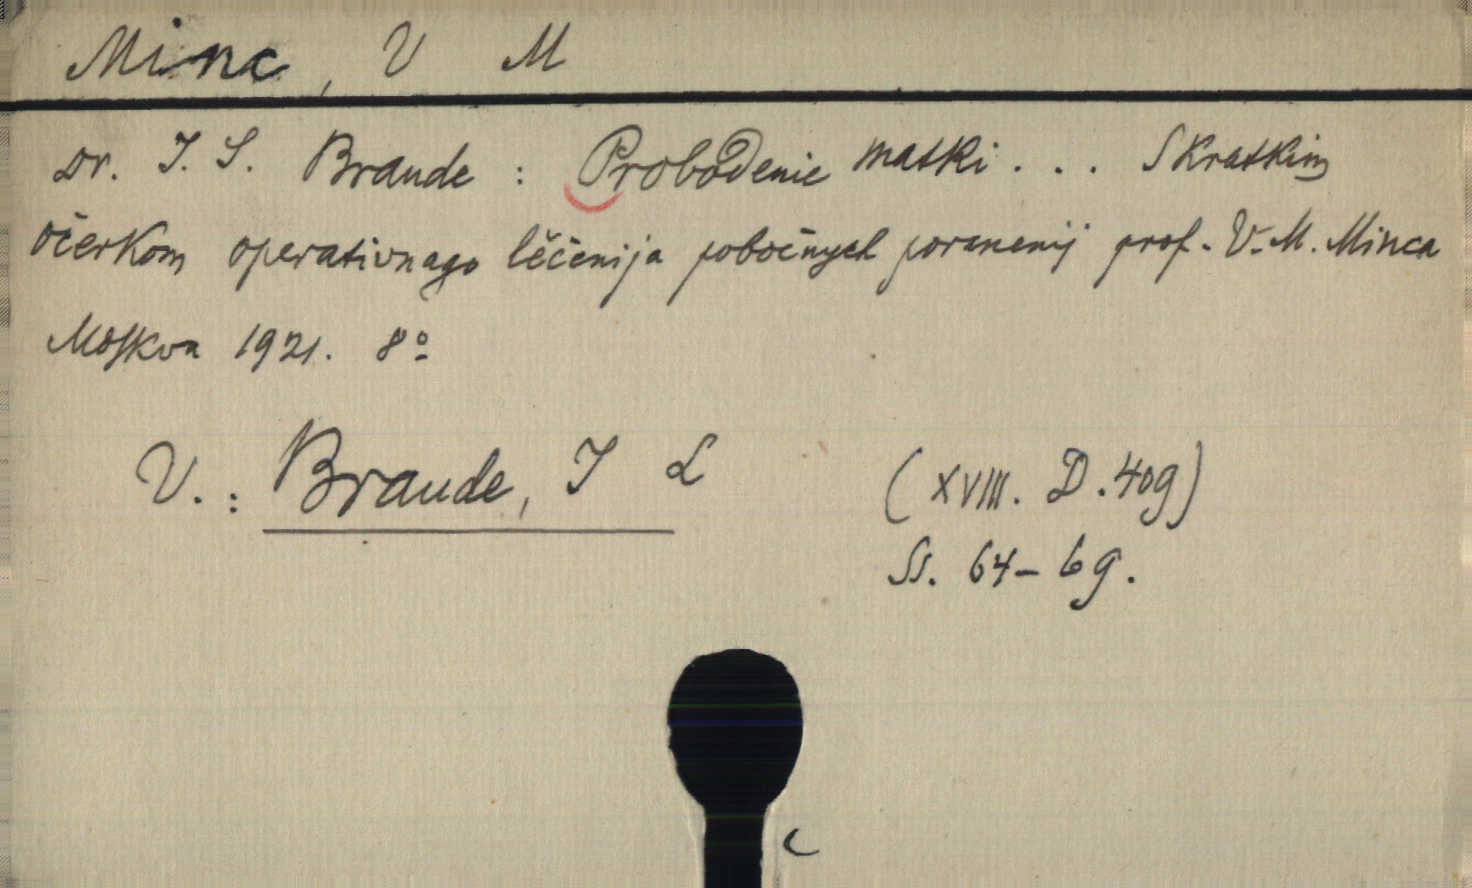 Minc, V M
Dr. I. S. Braude : Probodenie matki . . . S kratkim
očerkom operativnago lěčenija pobočnych poranenij prof. V. M. Minca
Moskva 1921. 8º
V. : Braude, I L
(XVIII. D. 409)
Ss. 64-69.
c